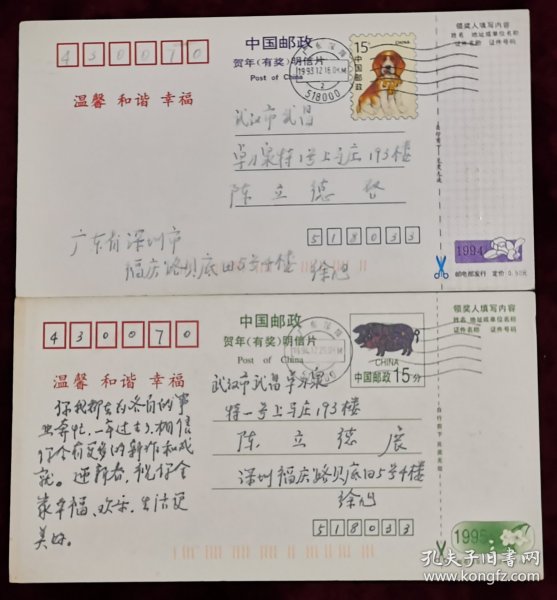 430070
中国邮政
贺年(有奖)明信片
Post of China
温馨 和谐 幸福
15分
CHINA
中国邮政
1993.12.16
518000
武汉市武昌
卓刀泉特1号上马庄193楼
陈立德 启
广东省深圳市
福庆路贝底田5号4楼
徐旭
518033
领奖人填写内容
姓名 地址或单位名称
证件名称 证件号码
1994
邮电部发行 定价 0.50元
430070
中国邮政
贺年(有奖)明信片
Post of China
温馨 和谐 幸福
CHINA
中国邮政 15分
武汉市武昌卓刀泉
特一号上马庄193楼
陈立德
深圳福庆路贝底田5号4楼
徐旭
518033
你我都在为各自的事
业奔忙,一年过去了,相信
你会有更多的新作和成
就。迎新春,祝你全
家幸福、欢乐、生活更
美好。
领奖人填写内容
姓名 地址或单位名称
证件名称 证件号码
1995
孔夫子旧书网
www.kongfz.com